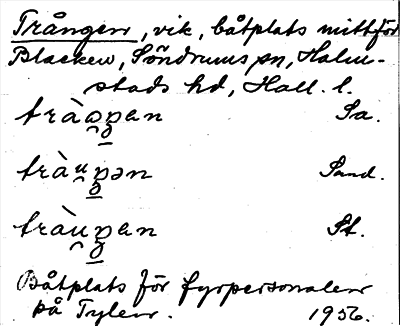 Trången, vik, båtplats mittför
Blacken, Söndrums sn, Halm-
stads hd, Hall. l.
Sa.
Sand.
St.
Båtplats för fyrpersonalen
på Tylen. 1956.